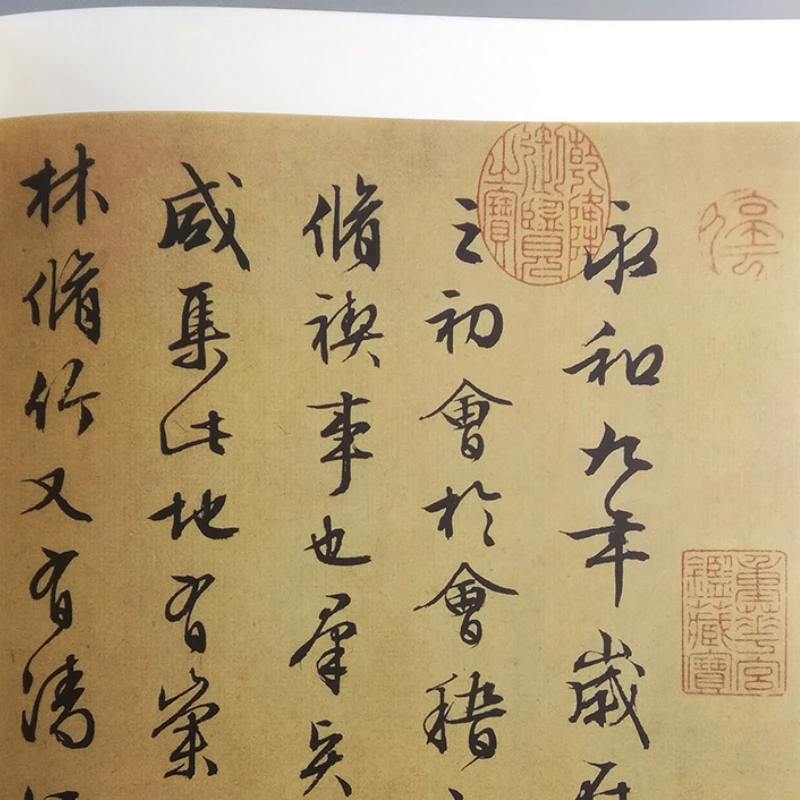 停雲
重華宮鑑藏寶
永和九年歲
乾隆御覽之寶
之初會於會稽
脩禊事也羣賢
咸集此地有崇
林脩竹又有清